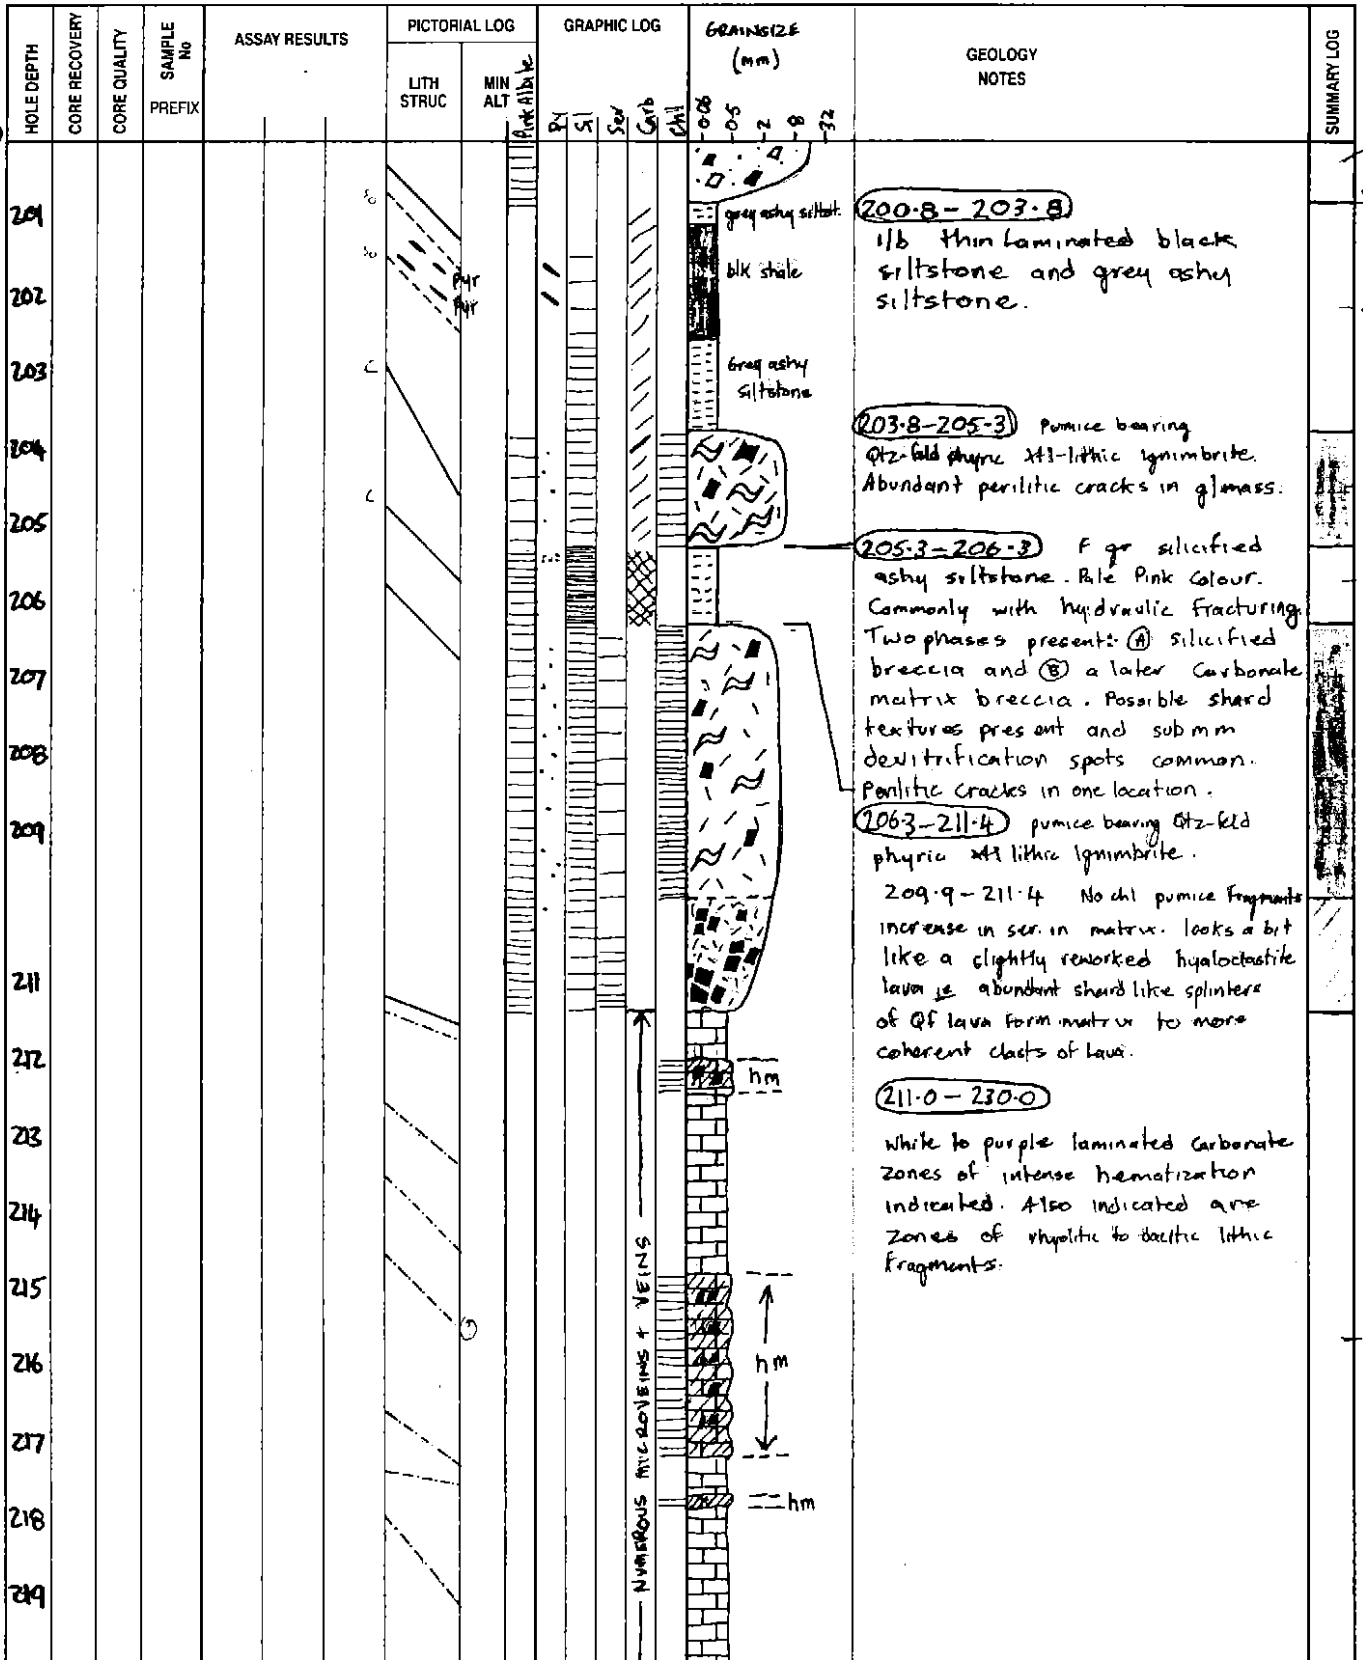 HOLE DEPTH
CORE RECOVERY
CORE QUALITY
SAMPLE No
PREFIX
ASSAY RESULTS
PICTORIAL LOG
LITH STRUC
MIN ALT
GRAPHIC LOG
Pink Albite
Py
Sil
Ser
Carb
Chl
GRAINSIZE
(mm)
0.06
0.5
2
8
32
GEOLOGY
NOTES
SUMMARY LOG
201
202
203
204
205
206
207
208
209
211
212
213
214
215
216
217
218
219
So
So
pyr
pyr
C
C
grey ashy siltst.
blk shale
Grey ashy
siltstone
hm
hm
hm
NUMEROUS MICROVEINS + VEINS
200.8 - 203.8
i/b thin laminated black
siltstone and grey ashy
siltstone.
203.8-205.3 Pumice bearing
Qtz-feld phyric xtl-lithic ignimbrite.
Abundant perilitic cracks in g/mass.
205.3-206.3 F gr silicified
ashy siltstone. Pale Pink Colour.
Commonly with hydraulic fracturing
Two phases present: A silicified
breccia and B a later Carbonate
matrix breccia. Possible shard
textures present and sub mm
devitrification spots common.
Perilitic cracks in one location.
206.3-211.4 pumice bearing Qtz-feld
phyric xtl lithic ignimbrite.
209.9-211.4 No chl pumice fragments
increase in ser. in matrix. looks a bit
like a slightly reworked hyaloclastite
lava ie abundant shard like splinters
of QF lava form matrix to more
coherent clasts of lava.
211.0 - 230.0
White to purple laminated carbonate
zones of intense hematization
indicated. Also indicated are
zones of rhyolitic to dacitic lithic
fragments.